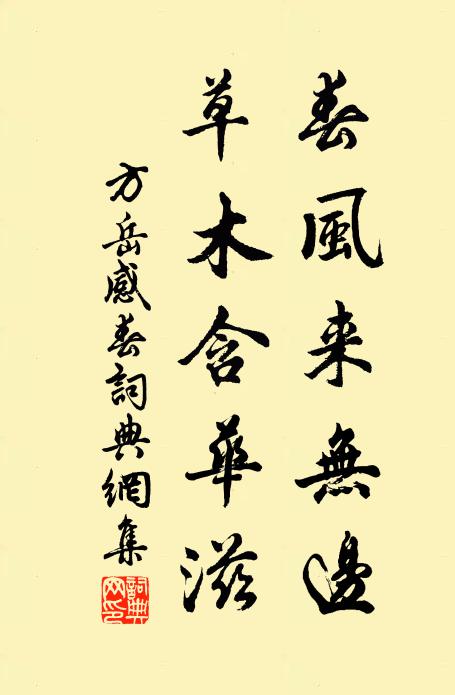 春風来無邊
草木含華滋
方岳感春詞典網集
詞典
网印